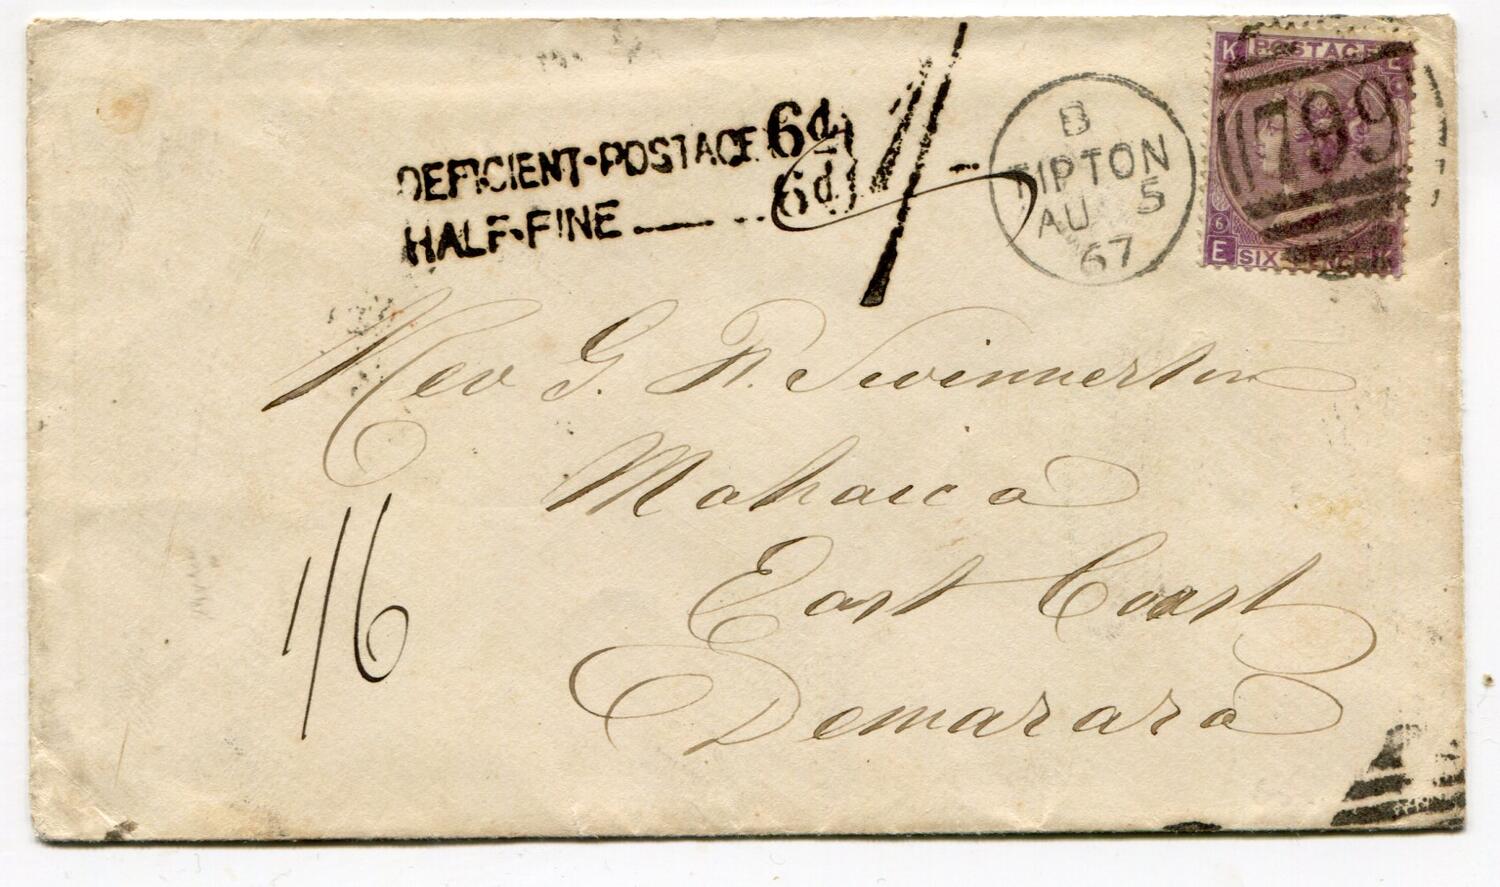 DEFICIENT-POSTAGE 6d
HALF-FINE 6d
1/-
B
TIPTON
AU 5
67
K POSTAGE E
799
6
E SIX PENCE K
Rev G. P. Swinnerton
Mahaica
East Coast
Demarara
1/6